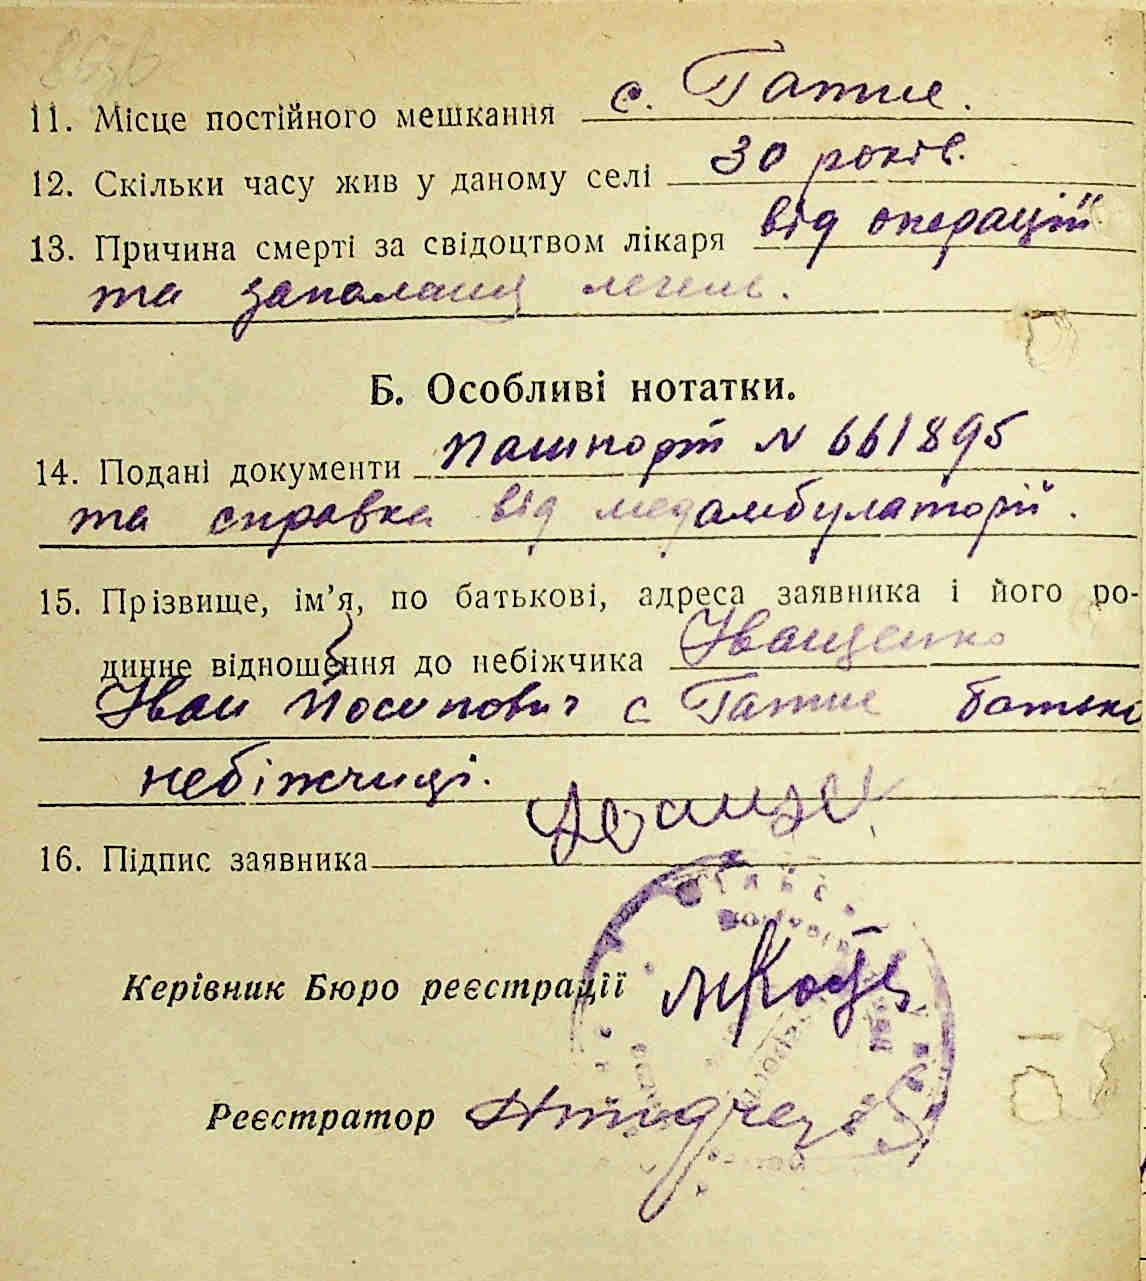 11. Місце постійного мешкання с. Гатне.
12. Скільки часу жив у даному селі 30 років.
13. Причина смерті за свідоцтвом лікаря від операції
та запалення легень.
Б. Особливі нотатки.
14. Подані документи пашпорт N 661895
та справка від медамбулаторії.
15. Прізвище, ім’я, по батькові, адреса заявника і його ро-
динне відношення до небіжчика Іващенко
Іван Йосипович с Гатне батько
небіжчиці.
16. Підпис заявника
Керівник Бюро реєстрації
Реєстратор